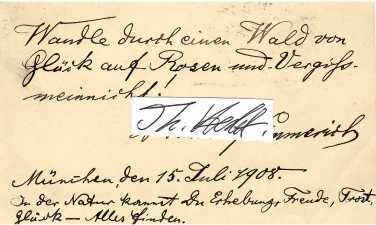 Wandle durch einen Wald von
Glück auf Rosen und Vergiss-
meinnicht!
Th.
München, den 15. Juli 1908.
In der Natur kannst Du Erhebung, Freude, Trost,
Glück – Alles finden.